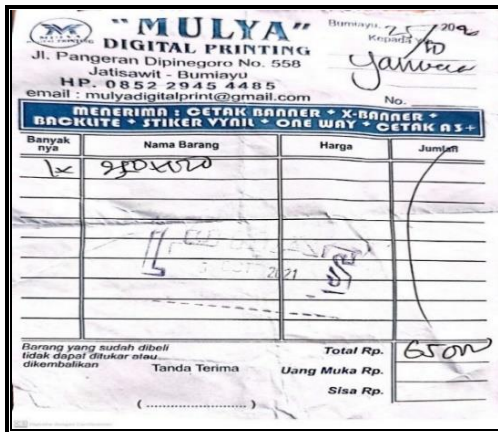 "MULYA"
DIGITAL PRINTING
Jl. Pangeran Dipinegoro No. 558
Jatisawit - Bumiayu
HP. 0852 2945 4485
email : mulyadigitalprint@gmail.com
Bumiayu, 25/10 20
Kepada Yth
No.
MENERIMA : CETAK BANNER * X-BANNER *
BACKLITE * STIKER VYNIL * ONE WAY * CETAK A3+
Banyak nya Nama Barang Harga Jumlah
1x
2021
Barang yang sudah dibeli
tidak dapat ditukar atau
dikembalikan
Tanda Terima
Total Rp.
Uang Muka Rp.
Sisa Rp.
(......................)